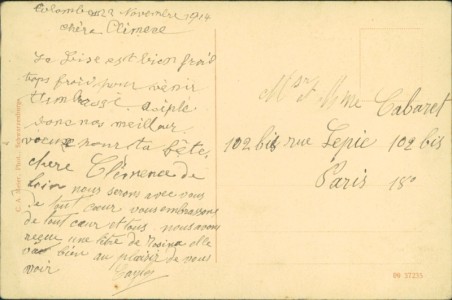 Colombes 22 Novembre 1914
chère Clémence
La Bise est bien froid
trop froid pour venir
t'embrassé. accepte
donc nos meilleur
voeux pour ta fête.
chere Clémence de
loin nous serons avec vous
de tout cœur vous embrassons
de tout cœur et tous nous avons
reçue une letre de Rosina elle
va bien au plaisir de vous
voir
Mr & Mme Cabaret
102 bis rue Lepic 102 bis
Paris 18e
09 37235